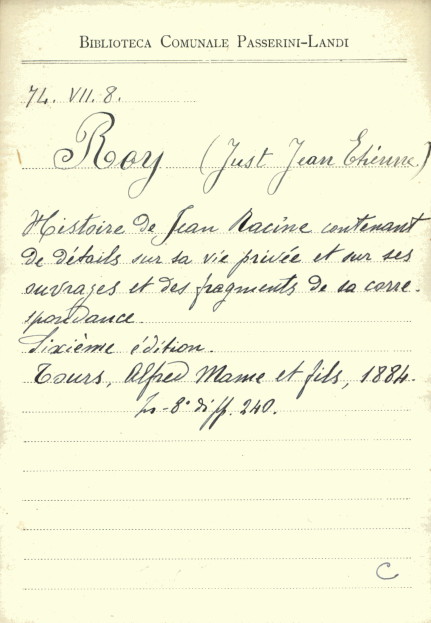 BIBLIOTECA COMUNALE PASSERINI-LANDI
74. VII. 8.
Roy (Just Jean Etienne)
Histoire de Jean Racine contenant
de détails sur sa vie privée et sur ses
ouvrages et des fragments de sa corre-
spondance.
Sixième édition.
Tours, Alfred Mame et fils, 1884.
In-8° di ff. 240.
C